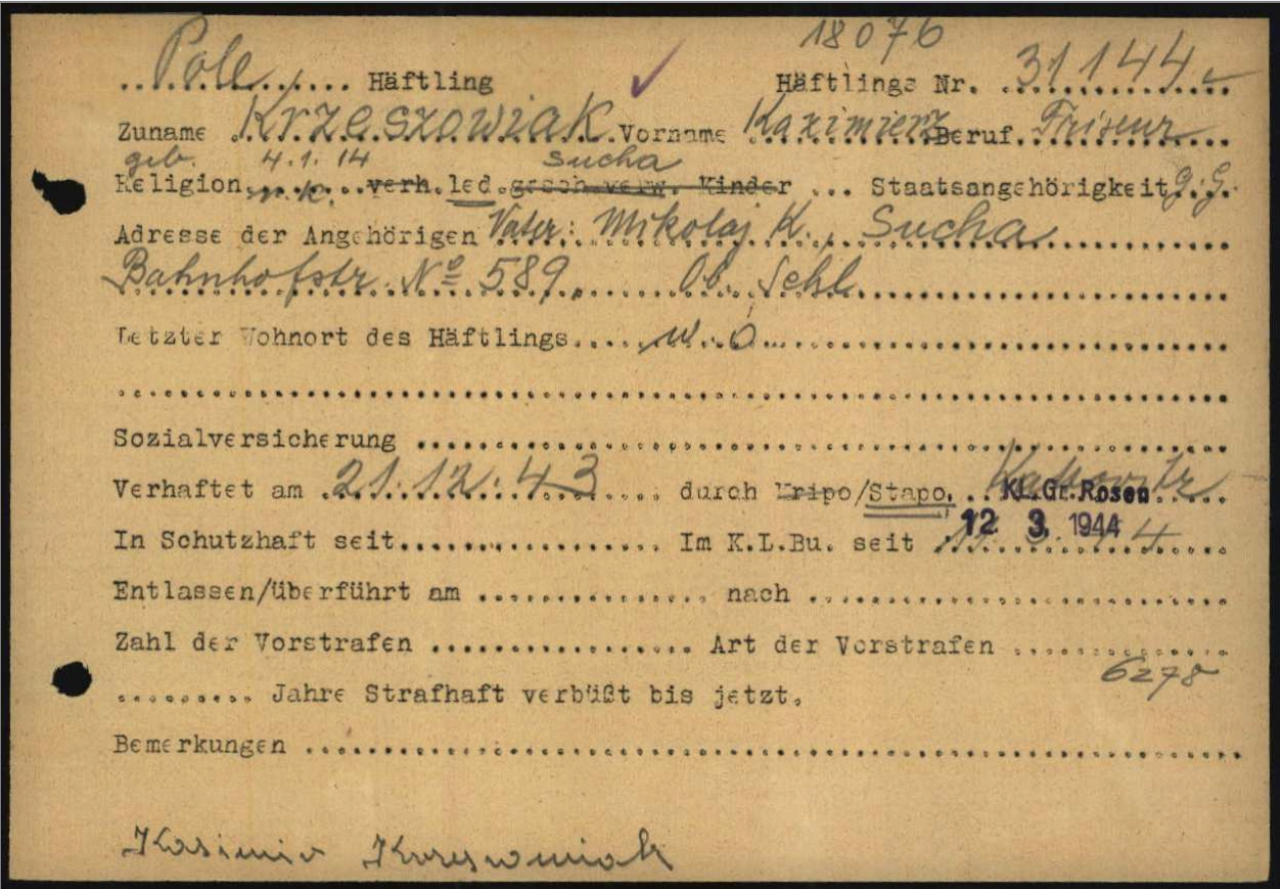 18076
Pole Häftling Häftlings Nr. 31144
Zuname Krzeszowiak Vorname Kazimierz Beruf Friseur
geb. 4.1.14 Sucha
Religion r.k. verh. led. gesch. verw. Kinder ... Staatsangehörigkeit G.G.
Adresse der Angehörigen Vater: Mikolaj K., Sucha
Bahnhofstr. No 589, Ob. Schl.
Letzter Wohnort des Häftlings w. o.
Sozialversicherung
Verhaftet am 21.12.43 durch Kripo/Stapo, Kattowitz
KL. Gr. Rosen
In Schutzhaft seit Im K.L.Bu. seit 12 3. 1944
Entlassen/überführt am nach
Zahl der Vorstrafen Art der Vorstrafen
6278
Jahre Strafhaft verbüßt bis jetzt.
Bemerkungen